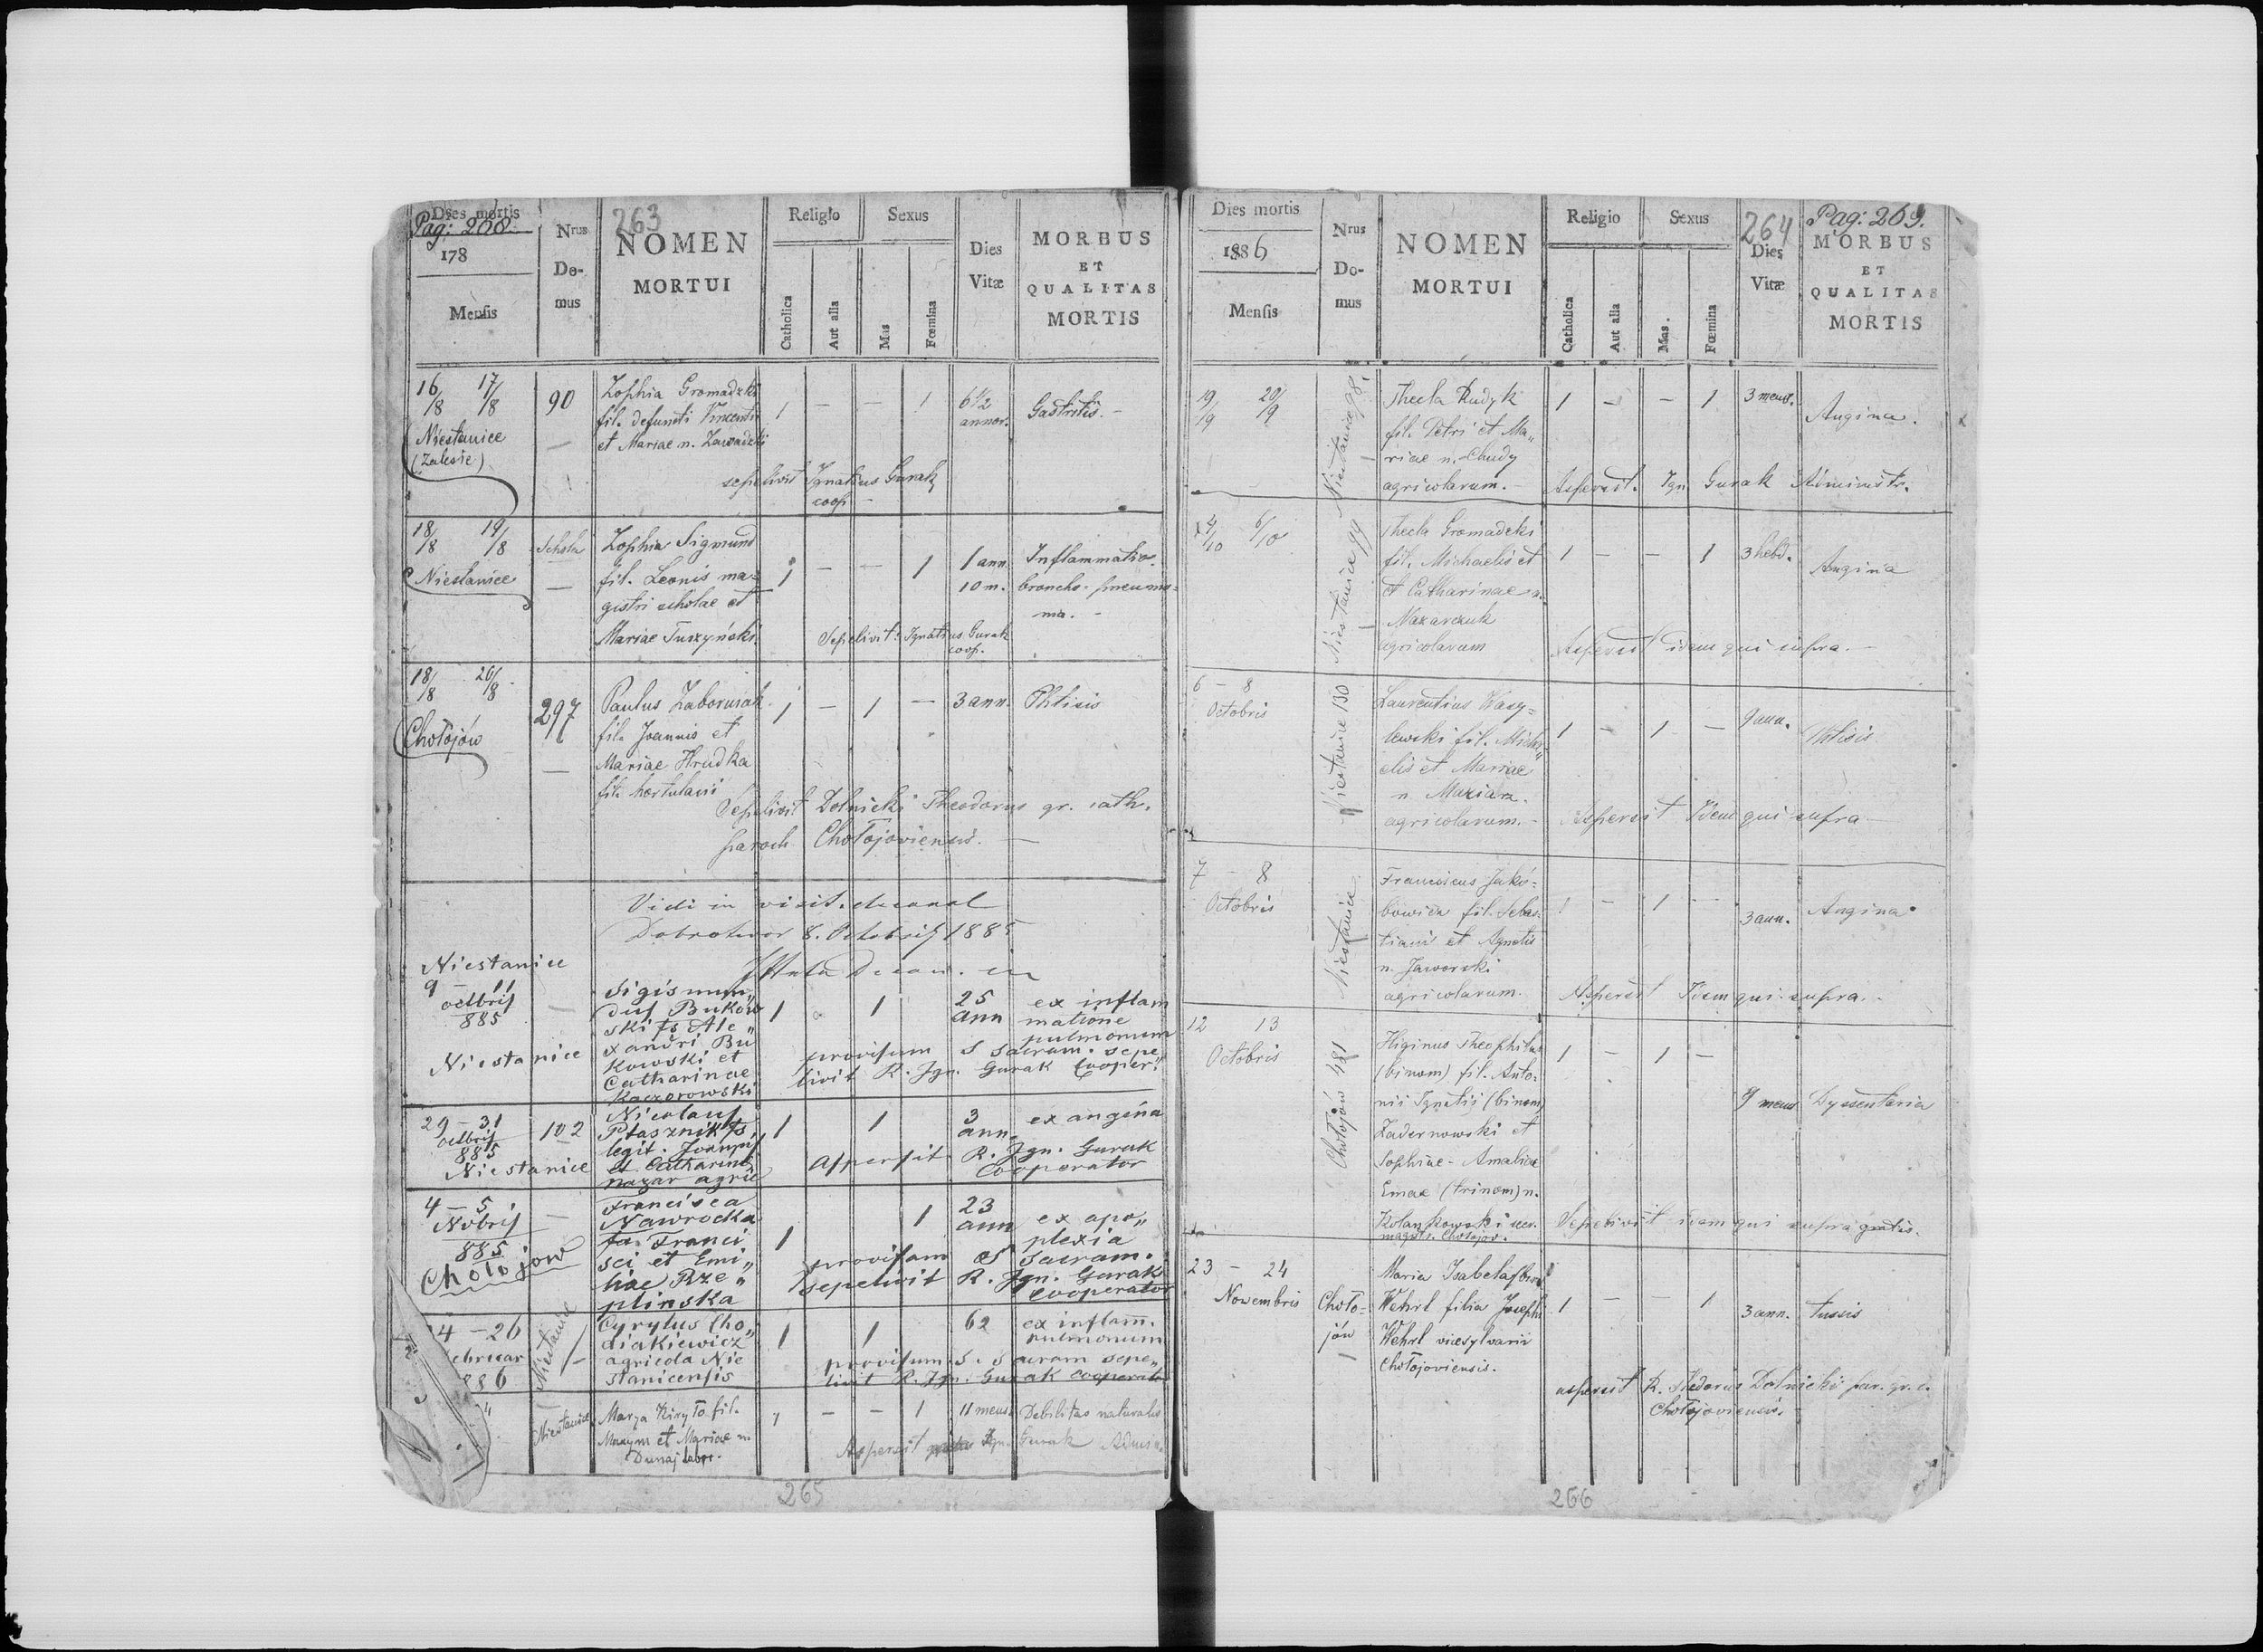 Dies mortis
Pag: 268.
178
Mensis
Nrus
Do-
mus
263
NOMEN
MORTUI
Religio
Catholica
Aut alia
Sexus
Mas
Fœmina
Dies
Vitæ
MORBUS
ET
QUALITAS
MORTIS
16/8 17/8
Niestanice
(Zalesie)
90
Zophia Gromadzki
fil. defuncti Vincentii
et Mariae n. Zawadzki
1 — — 1
6 1/2
annor.
Gastritis. -
sepelivit Ignatius Gurak
coop -
18/8 19/8
Niestanice
Schola
Zophia Sigmund
fil. Leonis ma=
gistri scholae et
Mariae Tuszyński.
1 — — 1
1 ann
10 m.
Inflammatio.
broncho-pneumo=
ma. -
Sepelivit: Ignatius Gurak
coop.
18/8 20/8
Chołojów
297
Paulus Zaborniak
fil. Joannis et
Mariae Hrudka
fil. hortulanis
1 — 1 —
3 ann.
Phtisis
Sepelivit Dolnicki Theodorus gr. cath.
paroch Chołojoviensis. —
Vidi in visit. decanal
Dobrotwor 8. Octobris 1885
Niestanice
9 - 11
octbris
885
Niestanice
Sigismun„
dus Buków
ski fs Ale„
xandri Bu
kowski et
Catharinae
Kaczorowski
1 1
25
ann
ex inflam
matione
pulmonum
provisum S Sacram. sepe„
livit R. Ign. Gurak Cooper.
29 - 31
octbris
885
Niestanice
102
Nicolaus
Ptasznik fs
legit. Joannis
et Catharinae
nazar agric
1 1
3
ann.
ex angina
aspersit R. Ign. Gurak
Cooperator
4 - 5
Nobris
885
Chołojow
Francisca
Nawrocka
fa Franci
sci et Emi„
liae Rze„
plinska
1 1
23
ann
ex apo„
plexia
provisam S Sacram.
sepelivit R. Ign. Gurak
Cooperator
24 - 26
Februar
886
Niestanice
Cyrylus Cho„
diakiewicz
agricola Nie
stanicensis
1 1
62
ex inflam.
pulmonum
provisum S. Sacram sepe„
livit R. Ign. Gurak cooperator
Niestanice
Marya Kiryło fil.
Maxym et Mariae n.
Dunaj labor.
1 — — 1
11 mens.
Debilitas naturalis
Aspersit Ign. Gurak Admin.
265
Dies mortis
1886
Mensis
Nrus
Do-
mus
NOMEN
MORTUI
Religio
Catholica
Aut alia
Sexus
Mas.
Fœmina
264
Dies
Vitæ
Pag: 269.
MORBUS
ET
QUALITAS
MORTIS
19/9 20/9
Niestanice 98.
Thecla Rudyk
fil. Petri et Ma„
riae n. Chudy
agricolarum. -
1 - - 1
3 mens.
Angina.
Aspersit. Ign Gurak Administr.
4/10 6/10
Niestanice 99
Thecla Gromadzki
fil. Michaelis et
et Catharinae n.
Nazarczuk
agricolarum
1 - - 1
3 hebd.
Angina
Aspersit idem qui supra. -
6 - 8
Octobris
Niestanice 130
Laurentius Wasy=
lewski fil. Micha„
elis et Mariae
n Maziarz.
agricolarum. -
1 - 1 -
9 ann.
Phtisis
Aspersit Idem qui supra -
7 - 8
Octobris
Niestanice
Franciscus Jakó=
bowicz fil. Sebas=
tiani et Agnetis
n. Jaworski
agricolarum.
1 - 1 -
3 ann.
Angina
Aspersit Idem qui supra. -
12 13
Octobris
Chołojów 481
Higinus Theophilus
(binom) fil. Anto=
nii Ignatii (binom)
Zadernowski et
Sophiae-Amaliae
Emae (trinom) n.
Kołankowski
magistr. Chołojov.
1 - 1 -
9 mens
Dyssenteria
Sepelivit idem qui supra gratis.
23 - 24
Novembris
Choło=
jów
Maria Isabela
Wehrl filia Josephi
Wehrl vicesylvarii
Chołojoviensis.
1 - - 1
3 ann.
tussis
aspersit R. Thedorus Dolnicki par. gr. c.
Chołojoviensis.
266